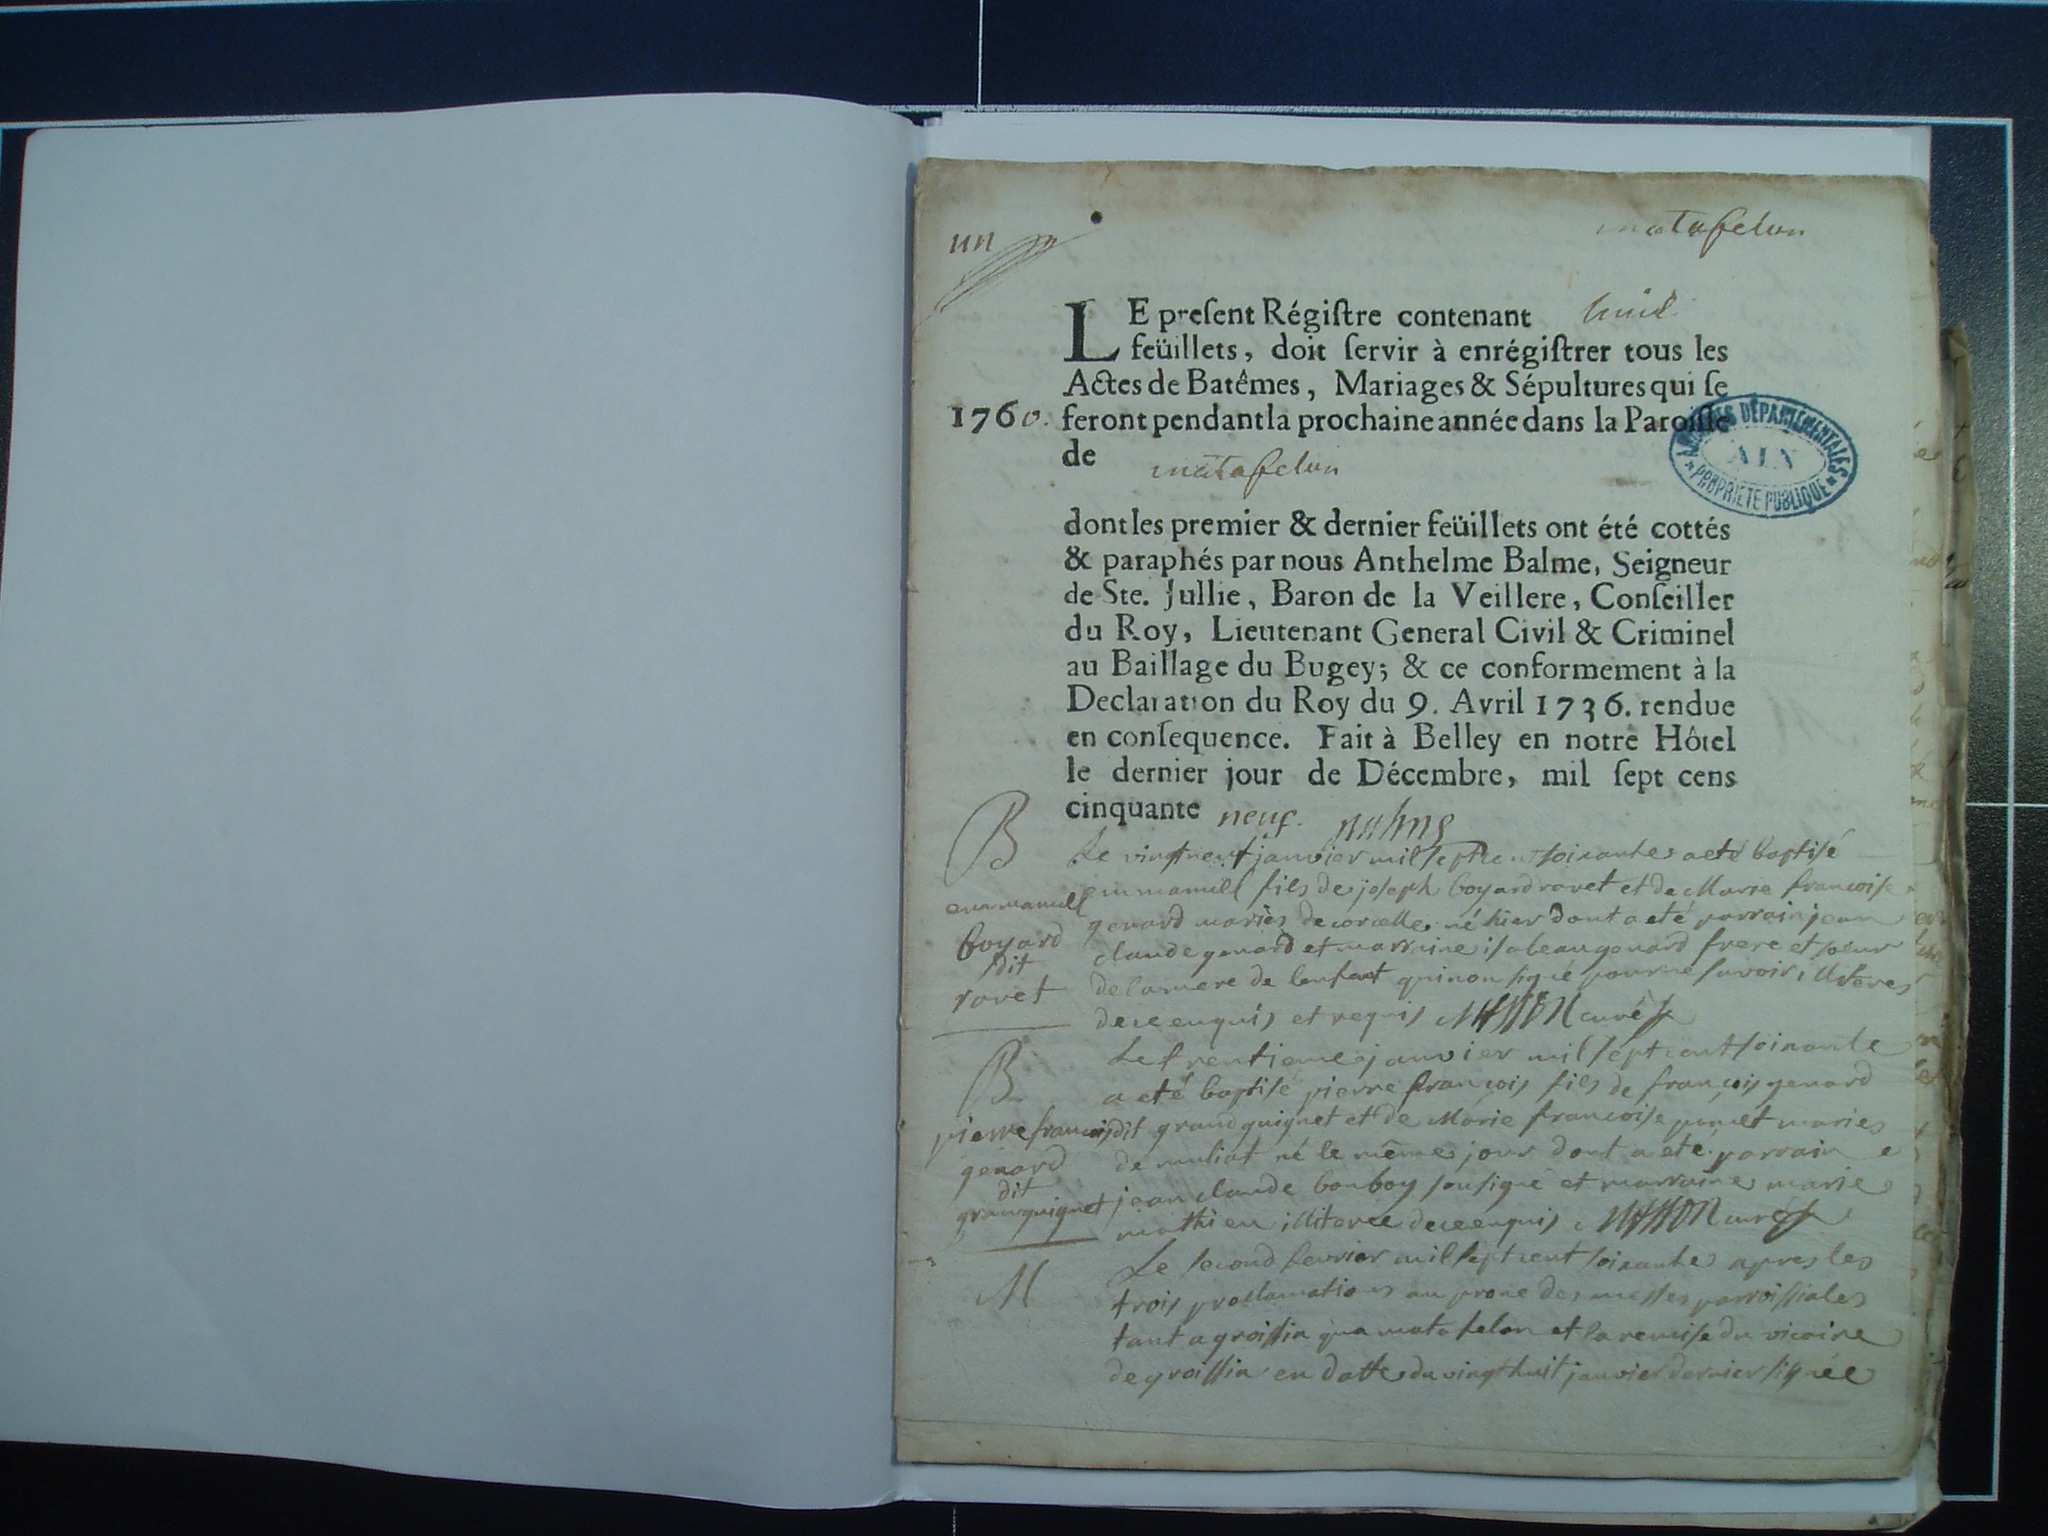 un
matafelon
LE presENT Régistre contenant huit
feüillets, doit servir à enrégistrer tous les
Actes de Batêmes, Mariages & Sépultures qui se
1760. feront pendant la prochaine année dans la Paroisse
de matafelon
ARCHIVES DÉPARTEMENTALES
AIN
PROPRIÉTÉ PUBLIQUE
dont les premier & dernier feüillets ont été cottés
& paraphés par nous Anthelme Balme, Seigneur
de Ste. Jullie, Baron de la Veillere, Conseiller
du Roy, Lieutenant General Civil & Criminel
au Baillage du Bugey; & ce conformement à la
Declaration du Roy du 9. Avril 1736. rendue
en consequence. Fait à Belley en notre Hôtel
le dernier jour de Décembre, mil sept cens
cinquante neuf.
B
emmanuell
boyard
dit
ravet
Le vingtneuf janvier mil sept cent soixante a eté baptisé
emmanuell fils de joseph boyard ravet et de Marie francoise
genard mariès de corcelle né hier dont a eté parrain jean
claude genard et marraine isabeau genard frere et soeur
de la mere de lenfant qui non signé pour ne savoir illiteres
de ce enquis et requis MASSON curé
B
pierre francois
genard
dit
granguignet
Le trentieme janvier mil sept cent soixante
a eté baptisé pierre françois fils de françois genard
dit grand guignet et de Marie francoise poncet maries
de muliat né le même jour dont a eté parrain
jean claude bonboy sousigné et marraine marie
mathieu illiteree de ce enquis MASSON curé
M
Le second fevrier mil sept cent soixante apres les
trois proclamations au prone des messes parroissiales
tant a groissia qua matafelon et la remise du vicaire
de groissia en datte du vingt huit janvier dernier signée